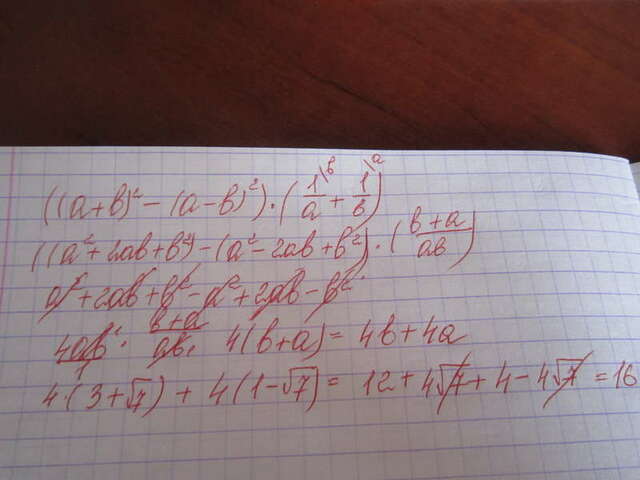 ((a+b)² - (a-b)²) · (1/a + 1/b)
((a²+2ab+b²) - (a²-2ab+b²)) · (b+a/ab)
a²+2ab+b²-a²+2ab-b²
4ab · b+a/ab 4(b+a) = 4b+4a
4·(3+√7) + 4(1-√7) = 12+4√7+4-4√7 = 16